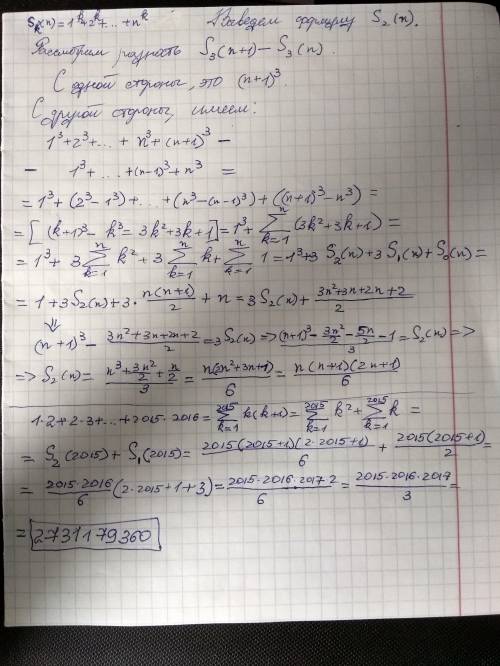 S_k(n)=1^k+2^k+...+n^k Выведем формулу S_2(n).
Рассмотрим разность S_3(n+1)-S_3(n).
С одной стороны, это (n+1)^3
С другой стороны, имеем:
1^3+2^3+...+n^3+(n+1)^3 -
- 1^3+...+(n-1)^3+n^3 =
= 1^3+(2^3-1^3)+...+(n^3-(n-1)^3)+((n+1)^3-n^3) =
= [(k+1)^3-k^3=3k^2+3k+1] = 1^3+∑_{k=1}^{n}(3k^2+3k+1) =
= 1^3+3∑_{k=1}^{n}k^2+3∑_{k=1}^{n}k+∑_{k=1}^{n}1=1^3+3S_2(n)+3S_1(n)+S_0(n)=
= 1+3S_2(n)+3·n(n+1)/2+n=3S_2(n)+(3n^2+3n+2n+2)/2
⇓
(n+1)^3-(3n^2+3n+2n+2)/2=3S_2(n)=>((n+1)^3-3n^2/2-5n/2-1)/3=S_2(n)=>
=> S_2(n)=(n^3+3n^2/2+n/2)/3=n(2n^2+3n+1)/6=n(n+1)(2n+1)/6
1·2+2·3+...+2015·2016=∑_{k=1}^{2015}k(k+1)=∑_{k=1}^{2015}k^2+∑_{k=1}^{2015}k =
= S_2(2015)+S_1(2015)=2015(2015+1)(2·2015+1)/6+2015(2015+1)/2=
= 2015·2016/6(2·2015+1+3)=2015·2016·2017·2/6=2015·2016·2017/3=
= 2731179360